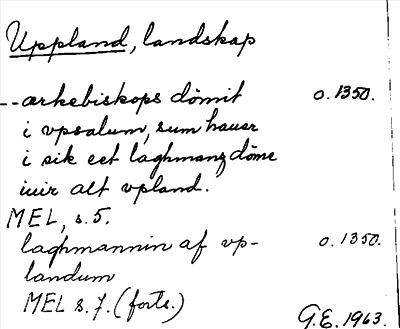 Uppland, landskap
--ærkebiskops dömit o.1350.
i vpsalum, sum hauer
i sik eet laghmanz döme
iuir alt vpland.
MEL, s.5.
laghmannin af vp- o.1350.
landum
MEL s.7. (forts.)
G.E. 1963.